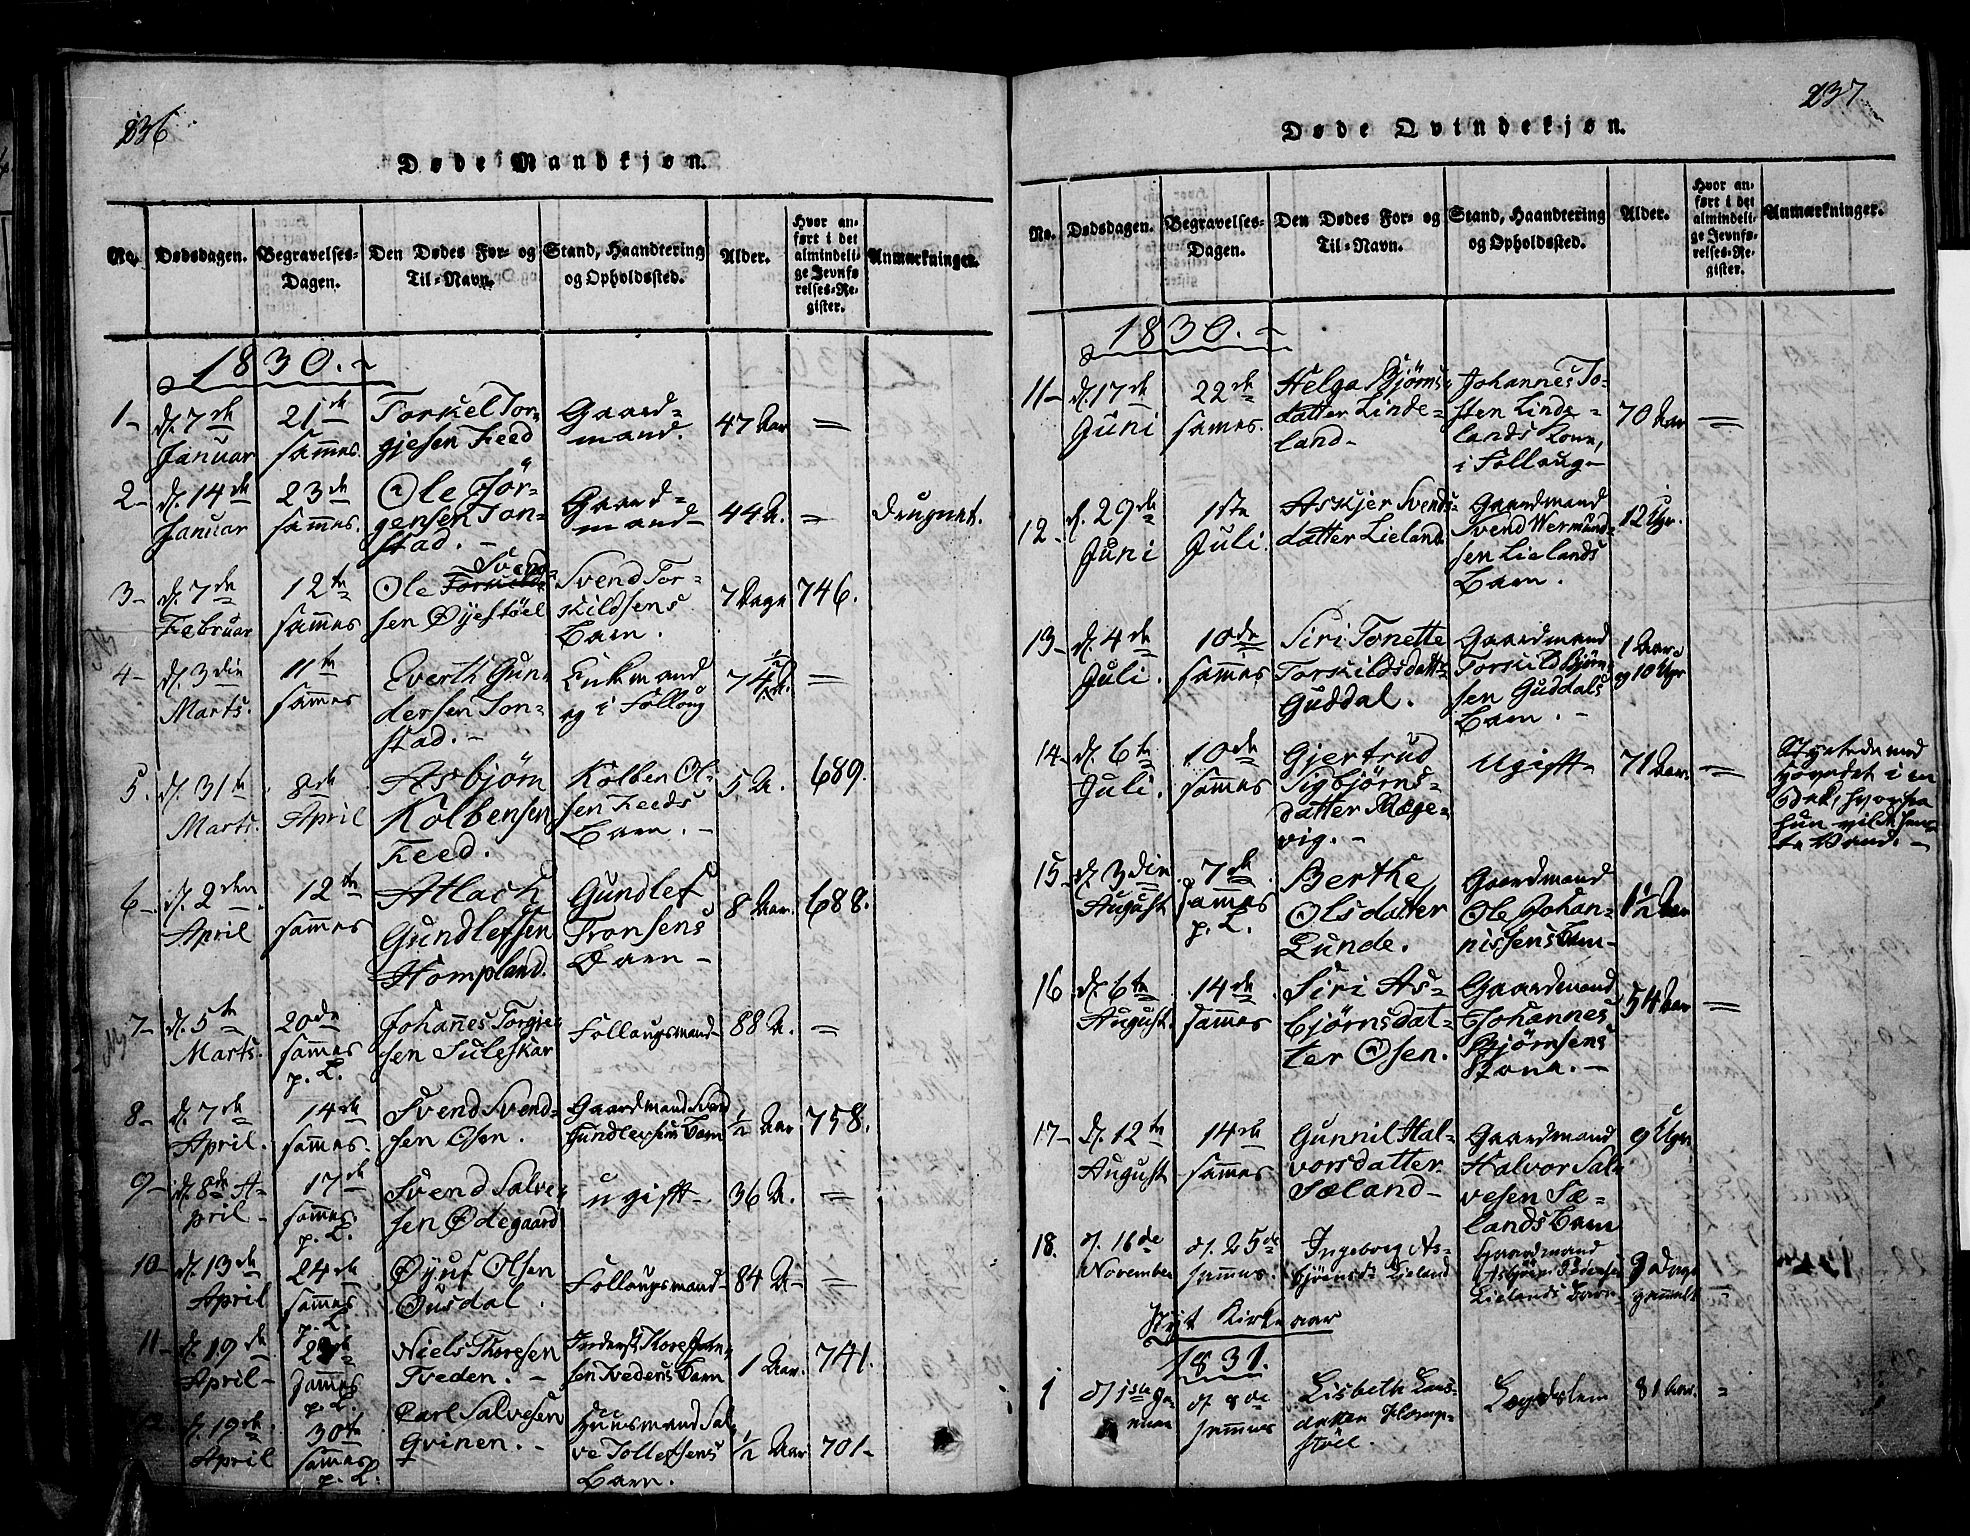 236
Døde Mandkjøn.
No. Dødsdagen. Begravelses-Dagen. Den Dødes For- og Til-Navn. Stand, Haandtering og Opholdssted. Alder. Hvor anført i det almindelige Jevnførelses-Register. Anmærkninger.
1830.
1- d. 7de Januar 21de sammes. Torkel Torgjesen Feed Gaardmand. 47 Aar =
2- d. 14de Januar 23de sammes. Ole Jörgensen Tonstad. - Gaardmand - 44 A. = drugnet.
3- d. 7de Februar 12te sammes Ole Torkilds Svendsen Øyestöel Svend Torskildsens Barn. 7 Dage 746.
4- d. 3die Marts. 11te sammes Everth Gundersen Tonstad. - Enkemand og i Follaug 74 1/2 A. =
5. d. 31te Marts. 8de April Asbjörn Kolbensen Feed. Kolben Olsen Feeds Barn. - 5 A. 689.
6- d. 2den April 12te sammes Atlach Gundlefsen Hompland. Gundlef Tronsens Barn - 8 Aar. 688.
7- d. 5te Marts. 20de sammes p. L. Johannes Torgiesen Suleskar Follaugsmand 88 A. =
8- d. 7de April. 14de sammes. Svend Svendsen Osen. Gaardmand Svend Gundlefsens Barn 1/2 Aar 758.
9- d. 8de April - 17de sammes. p. L. Svend Salvesen Ødegaard ugift - 36 A. =
10- d. 13de April 24de sammes p. L. Øyuf Olsen Ousdal. Follaugsmand 84 A - =
11- d. 19de April - sammes p. L. Niels Thoresen Tveden. - Thore sen Tvedens Barn 1 Aar. 741.
d. 19de April 30te sammes p. L. Carl Salvesen Qvinen. - Huusmand Salve Tollefsens Barn. 1/2 Aar 701-
237
Døde Qvindekjøn.
No. Dødsdagen. Begravelses-Dagen. Den Dødes For- og Til-Navn. Stand, Haandtering og Opholdssted. Alder. Hvor anført i det almindelige Jevnførelses-Register. Anmærkninger.
1830.
11- d. 17de Juni 22de sammes. Helga Bjørnsdatter Lindeland - Johannes Tosten Lindelands Kone, i Follaug - 70 Aar =
12- d. 29de Juni 1ste Juli. Askjer Svendsdatter Lieland Gaardmand Svend Wermundsen Lielands Barn. 12 Ugr.
13- d. 4de Juli. 10de sammes Siri Tonette Torskildsdatter Guddal. Gaardmand Torskild Bjørnsen Guddals Barn. - 1 Aar og 10 Ugr
14- d. 6te Juli. 10de sammes Gjertrud Sigbjörnsdatter Rægevig. - Ugift - 71 Aar. = Styrtede med Hovedet i en Bæk, hvorfra hun vilde hente Vand. -
15- d. 3die August 7de sammes p. L. Berthe Olsdatter Lunde. Gaardmand Ole Johannissens Barn - 1 1/2 Aar
16 d. 6te August. 14de sammes Siri Asbjörnsdatter Osen. Gaardmand Johannes Bjørnsens Kone. - 54 Aar =
17- d. 12te August 14de sammes Gunnil Halvorsdatter Sæland - Gaardmand Halvor Salvesen Sælands Barn 9 Ugr.
18. d. 16de November d. 25de sammes. Ingeborg Asbjørensd. Lieland Gaardmand Asbjörn Pedersen Lielands Barn 9 Dage gammelt -
Nyt Kirkeaar
1831.
1 d. 1ste Januar d 8de sammes Lisbeth Larsdatter Hompstöel. Lægdslem 81 Aar. -